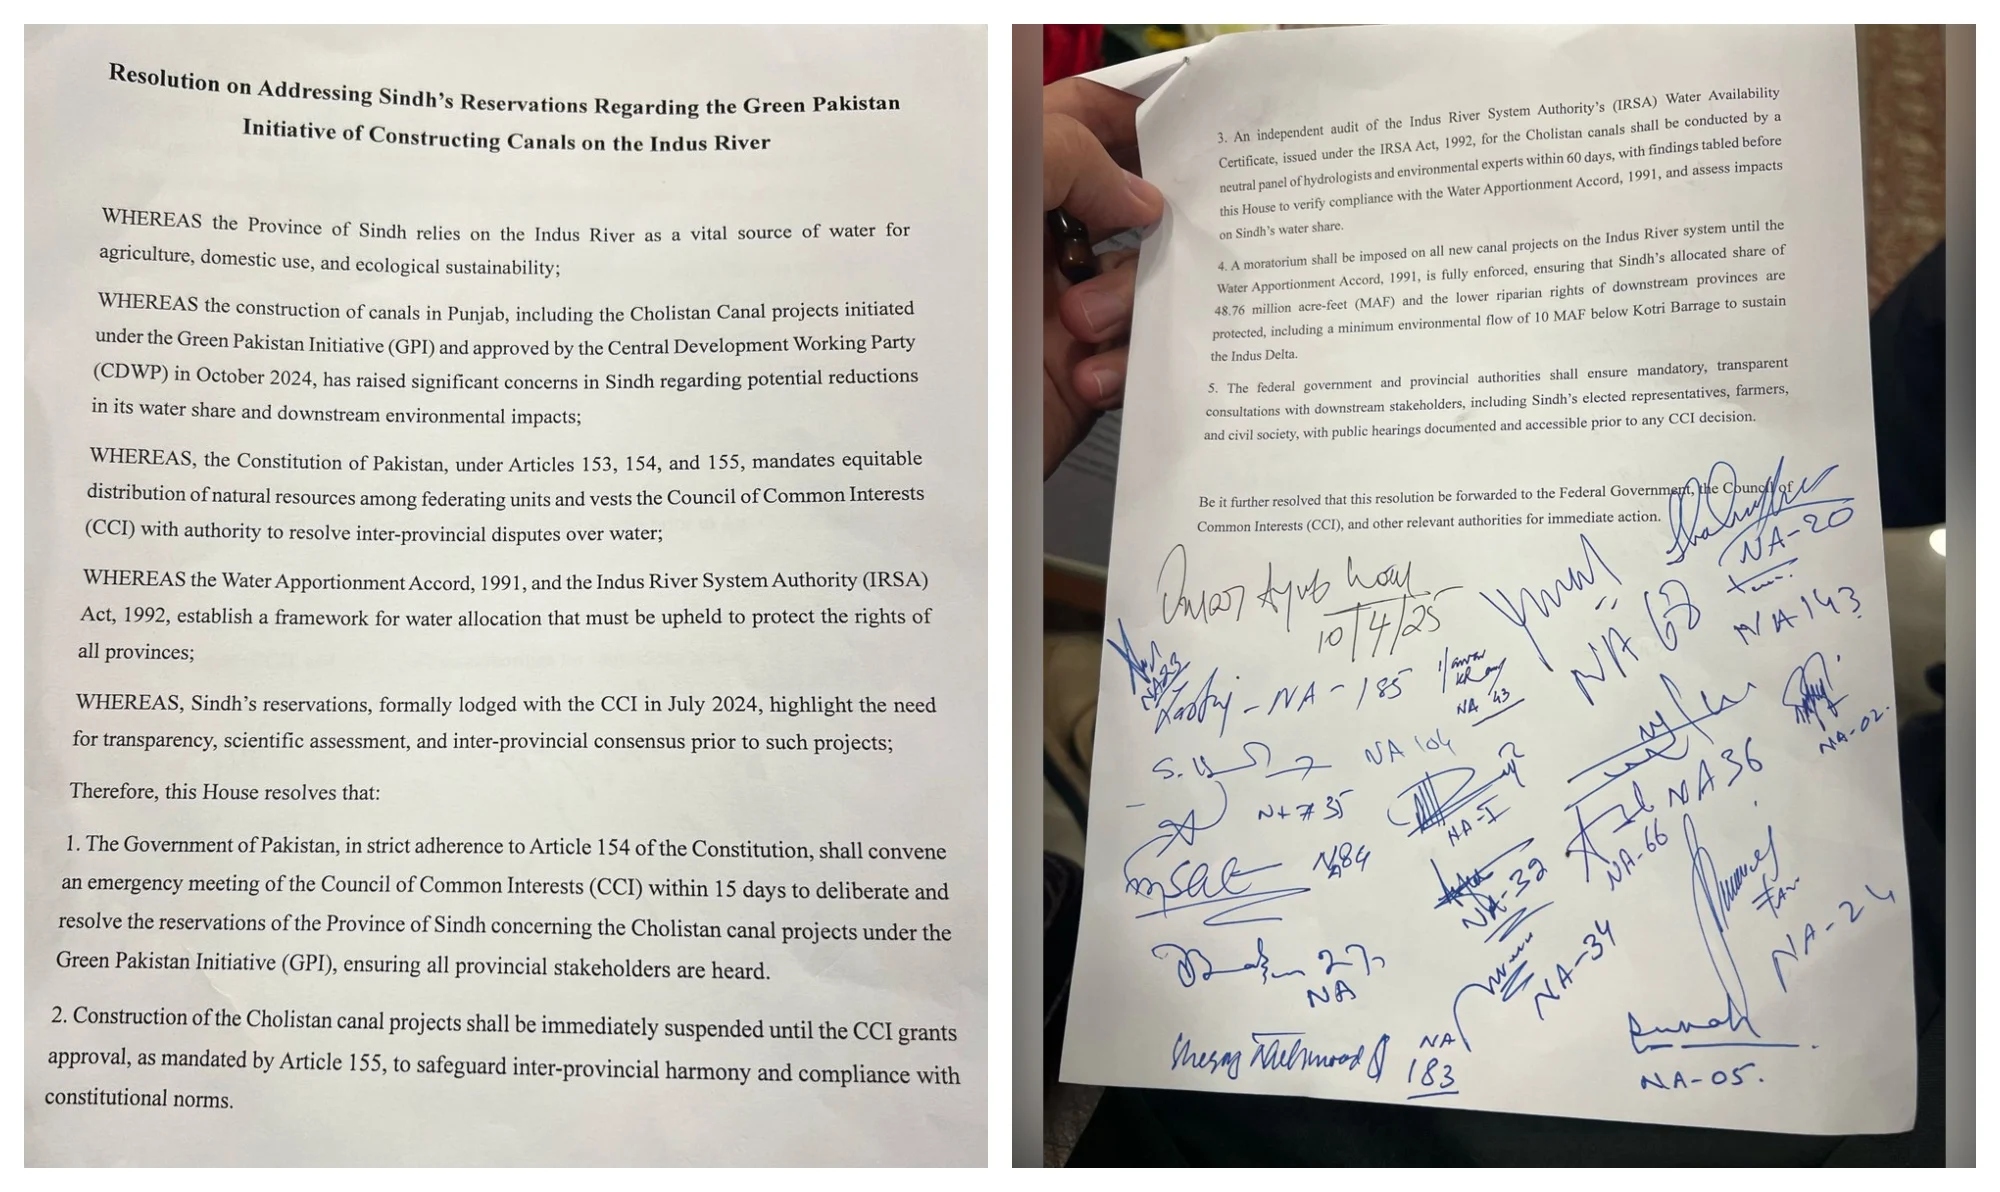 Resolution on Addressing Sindh's Reservations Regarding the Green Pakistan
Initiative of Constructing Canals on the Indus River
WHEREAS the Province of Sindh relies on the Indus River as a vital source of water for
agriculture, domestic use, and ecological sustainability;
WHEREAS the construction of canals in Punjab, including the Cholistan Canal projects initiated
under the Green Pakistan Initiative (GPI) and approved by the Central Development Working Party
(CDWP) in October 2024, has raised significant concerns in Sindh regarding potential reductions
in its water share and downstream environmental impacts;
WHEREAS, the Constitution of Pakistan, under Articles 153, 154, and 155, mandates equitable
distribution of natural resources among federating units and vests the Council of Common Interests
(CCI) with authority to resolve inter-provincial disputes over water;
WHEREAS the Water Apportionment Accord, 1991, and the Indus River System Authority (IRSA)
Act, 1992, establish a framework for water allocation that must be upheld to protect the rights of
all provinces;
WHEREAS, Sindh's reservations, formally lodged with the CCI in July 2024, highlight the need
for transparency, scientific assessment, and inter-provincial consensus prior to such projects;
Therefore, this House resolves that:
1. The Government of Pakistan, in strict adherence to Article 154 of the Constitution, shall convene
an emergency meeting of the Council of Common Interests (CCI) within 15 days to deliberate and
resolve the reservations of the Province of Sindh concerning the Cholistan canal projects under the
Green Pakistan Initiative (GPI), ensuring all provincial stakeholders are heard.
2. Construction of the Cholistan canal projects shall be immediately suspended until the CCI grants
approval, as mandated by Article 155, to safeguard inter-provincial harmony and compliance with
constitutional norms.
3. An independent audit of the Indus River System Authority's (IRSA) Water Availability
Certificate, issued under the IRSA Act, 1992, for the Cholistan canals shall be conducted by a
neutral panel of hydrologists and environmental experts within 60 days, with findings tabled before
this House to verify compliance with the Water Apportionment Accord, 1991, and assess impacts
on Sindh's water share.
4. A moratorium shall be imposed on all new canal projects on the Indus River system until the
Water Apportionment Accord, 1991, is fully enforced, ensuring that Sindh's allocated share of
48.76 million acre-feet (MAF) and the lower riparian rights of downstream provinces are
protected, including a minimum environmental flow of 10 MAF below Kotri Barrage to sustain
the Indus Delta.
5. The federal government and provincial authorities shall ensure mandatory, transparent
consultations with downstream stakeholders, including Sindh's elected representatives, farmers,
and civil society, with public hearings documented and accessible prior to any CCI decision.
Be it further resolved that this resolution be forwarded to the Federal Government, the Council of
Common Interests (CCI), and other relevant authorities for immediate action.
NA-20
Omar Ayub
10/4/25
NA 68
NA 143
NA 23
NA-185
NA 43
NA-02.
NA 104
NA 36
NA-I
NA 84
NA-66
NA-32
NA-24
27
NA
NA-34
NA
183
NA-05.